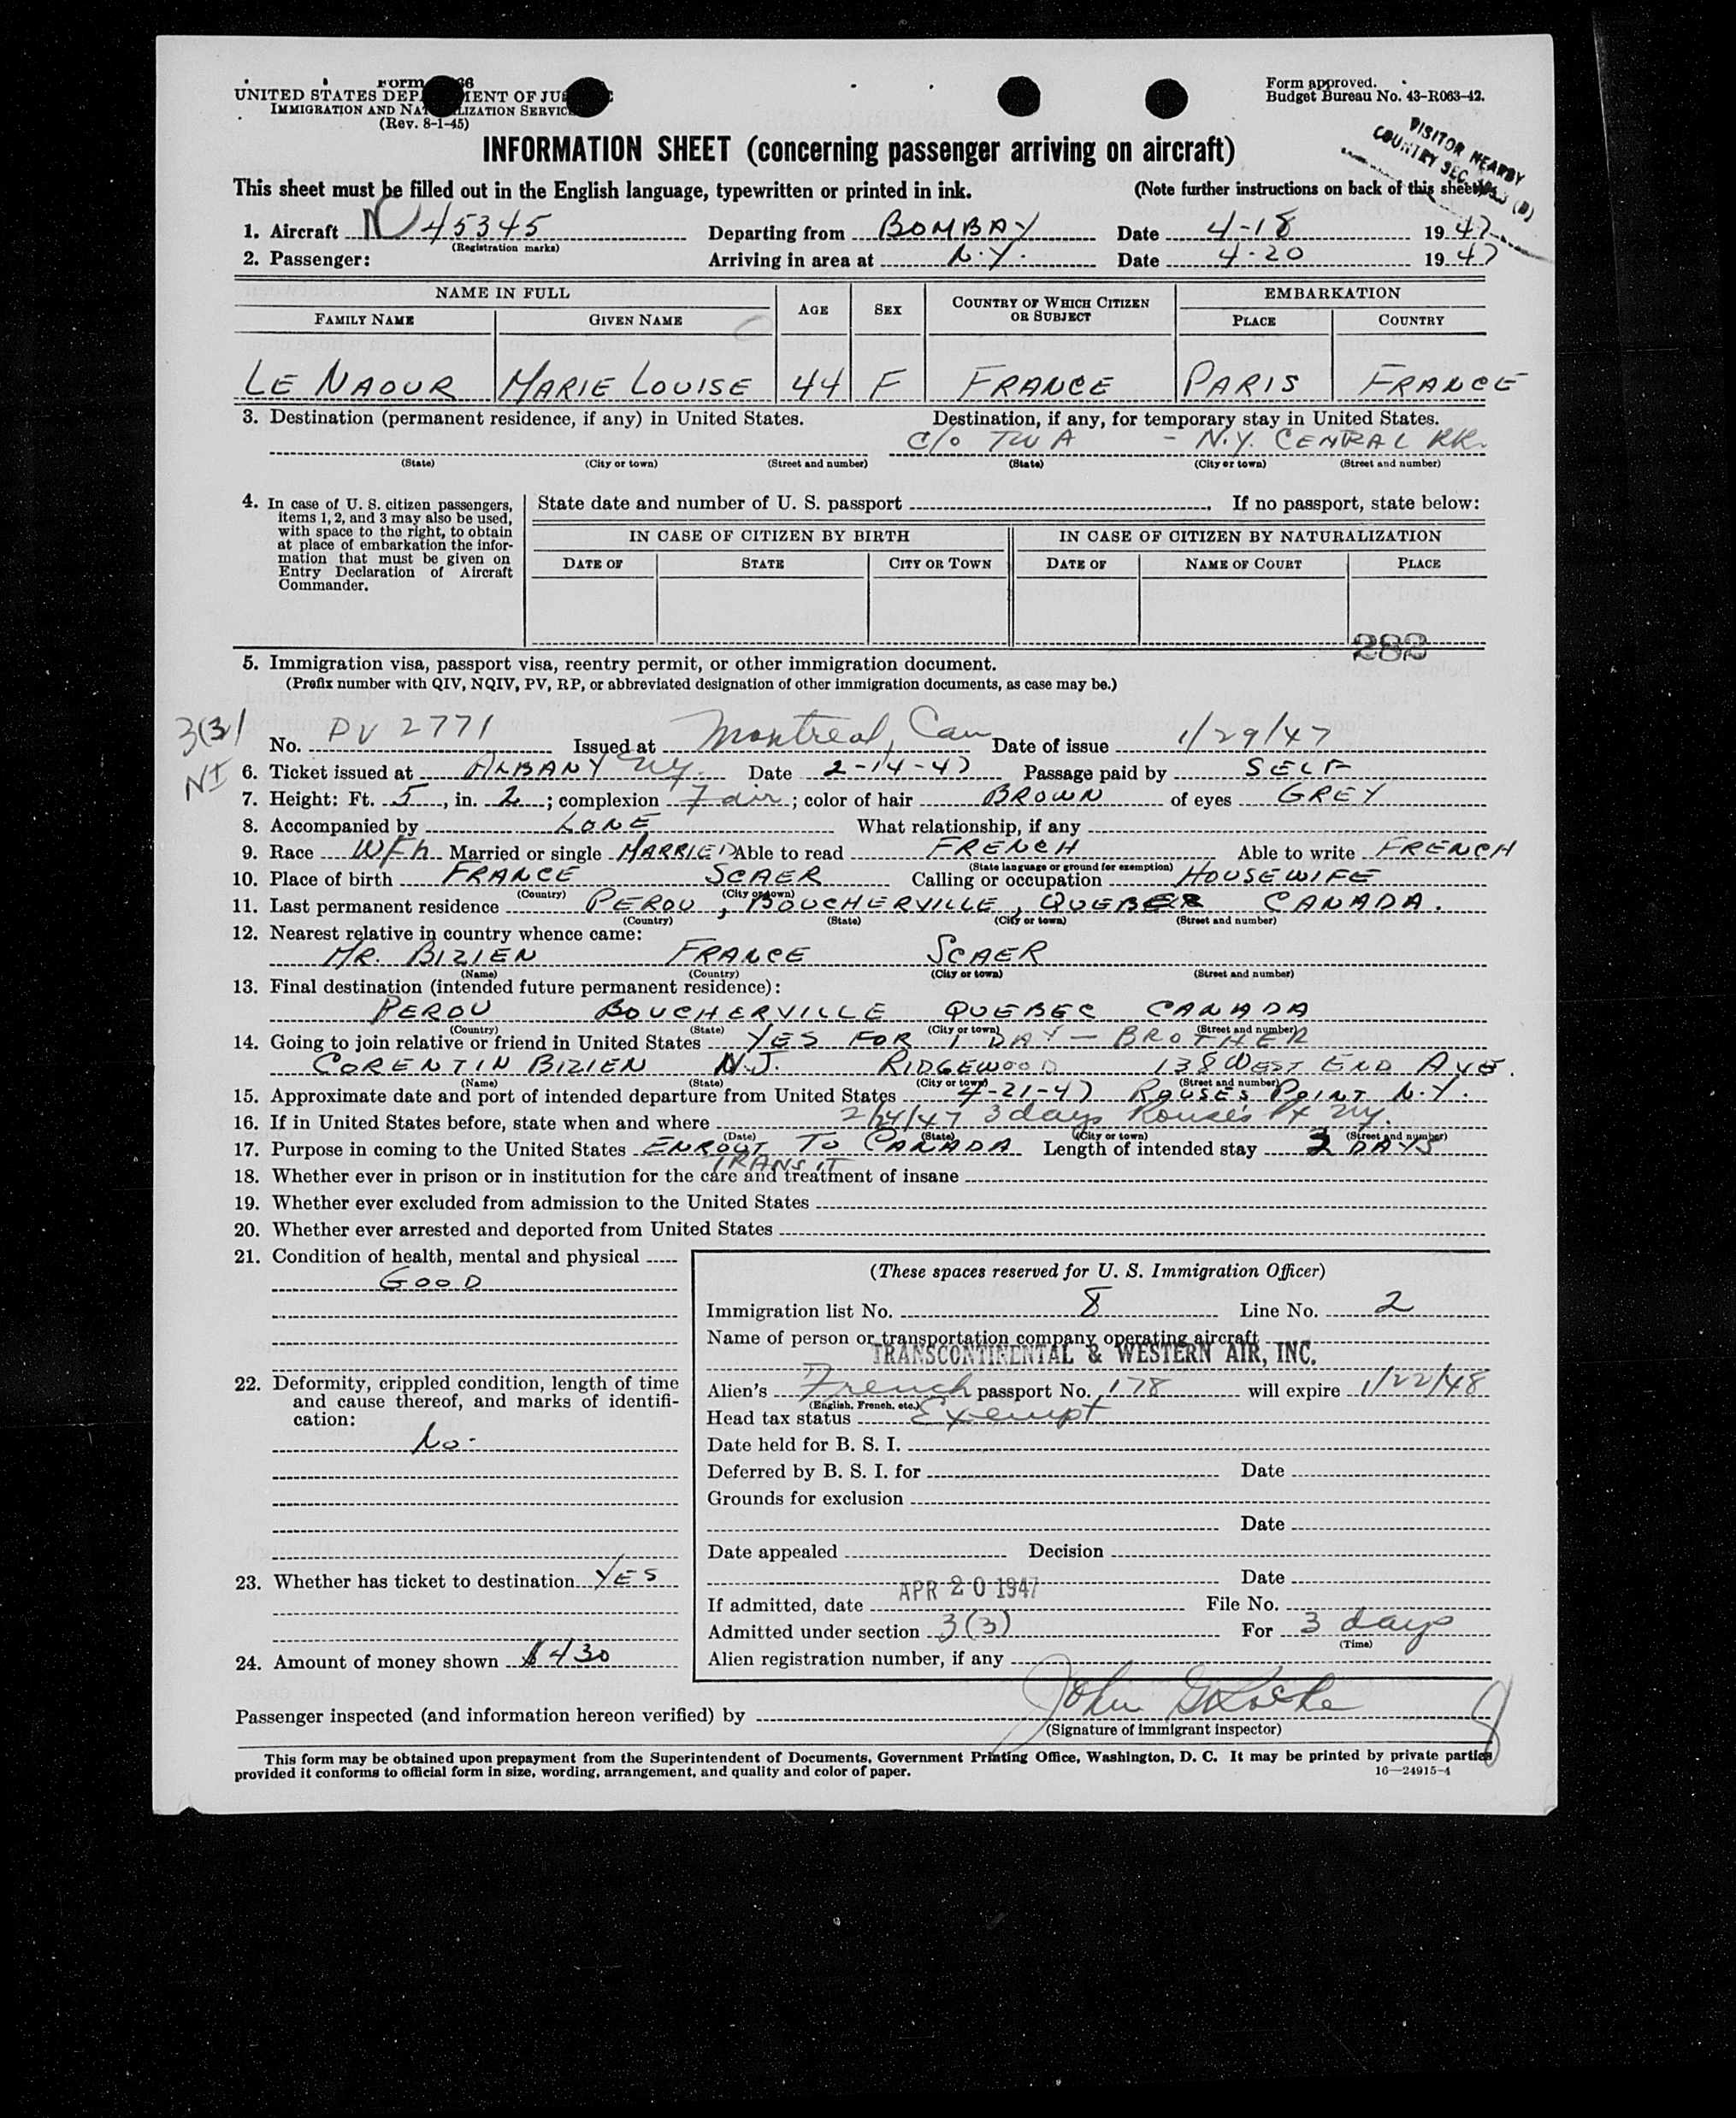 Form 66
UNITED STATES DEP MENT OF JU
IMMIGRATION AND NAT LIZATION SERVICE
(Rev. 8-1-45)
Form approved.
Budget Bureau No. 43-R063-42.
VISITOR NEARBY
COUNTRY SEC.
INFORMATION SHEET (concerning passenger arriving on aircraft)
This sheet must be filled out in the English language, typewritten or printed in ink. (Note further instructions on back of this sheet
1. Aircraft NC 45345 Departing from BOMBAY Date 4-18 1947
(Registration marks)
2. Passenger: Arriving in area at N.Y. Date 4-20 1947
NAME IN FULL AGE SEX COUNTRY OF WHICH CITIZEN OR SUBJECT EMBARKATION
FAMILY NAME GIVEN NAME PLACE COUNTRY
LE NAOUR MARIE LOUISE 44 F FRANCE PARIS FRANCE
3. Destination (permanent residence, if any) in United States. Destination, if any, for temporary stay in United States.
C/o TWA - N.Y. CENTRAL RR.
(State) (City or town) (Street and number) (State) (City or town) (Street and number)
4. In case of U. S. citizen passengers, items 1, 2, and 3 may also be used, with space to the right, to obtain at place of embarkation the information that must be given on Entry Declaration of Aircraft Commander.
State date and number of U. S. passport . If no passport, state below:
IN CASE OF CITIZEN BY BIRTH IN CASE OF CITIZEN BY NATURALIZATION
DATE OF STATE CITY OR TOWN DATE OF NAME OF COURT PLACE
282
5. Immigration visa, passport visa, reentry permit, or other immigration document.
(Prefix number with QIV, NQIV, PV, RP, or abbreviated designation of other immigration documents, as case may be.)
3(3)
No. PV 2771 Issued at Montreal, Can Date of issue 1/29/47
6. Ticket issued at ALBANY NY. Date 2-14-47 Passage paid by SELF
7. Height: Ft. 5, in. 2; complexion Fair; color of hair BROWN of eyes GREY
8. Accompanied by LONE What relationship, if any
9. Race W Fh Married or single MARRIED Able to read FRENCH Able to write FRENCH
(State language or ground for exemption)
10. Place of birth FRANCE SCAER Calling or occupation HOUSEWIFE
(Country) (City or town)
11. Last permanent residence PEROU, BOUCHERVILLE, QUEBEC CANADA.
(Country) (State) (City or town) (Street and number)
12. Nearest relative in country whence came:
MR. BIZIEN FRANCE SCAER
(Name) (Country) (City or town) (Street and number)
13. Final destination (intended future permanent residence):
PEROU BOUCHERVILLE QUEBEC CANADA
(Country) (State) (City or town) (Street and number)
14. Going to join relative or friend in United States YES FOR 1 DAY - BROTHER
CORENTIN BIZIEN N.J. RIDGEWOOD 138 WEST END AVE.
(Name) (State) (City or town) (Street and number)
15. Approximate date and port of intended departure from United States 4-21-47 ROUSES POINT N.Y.
16. If in United States before, state when and where 2/14/47 3 days Rouses Pt NY.
(Date) (State) (City or town) (Street and number)
17. Purpose in coming to the United States ENROUT TO CANADA Length of intended stay 3 DAYS
TRANSIT
18. Whether ever in prison or in institution for the care and treatment of insane
19. Whether ever excluded from admission to the United States
20. Whether ever arrested and deported from United States
21. Condition of health, mental and physical
GOOD
22. Deformity, crippled condition, length of time and cause thereof, and marks of identification:
No.
23. Whether has ticket to destination YES
24. Amount of money shown $430
(These spaces reserved for U. S. Immigration Officer)
Immigration list No. 8 Line No. 2
Name of person or transportation company operating aircraft
TRANSCONTINENTAL & WESTERN AIR, INC.
Alien's French passport No. 178 will expire 1/22/48
(English, French, etc.)
Head tax status Exempt
Date held for B. S. I.
Deferred by B. S. I. for Date
Grounds for exclusion
Date
Date appealed Decision
Date
If admitted, date APR 20 1947 File No.
Admitted under section 3(3) For 3 days
(Time)
Alien registration number, if any
Passenger inspected (and information hereon verified) by John
(Signature of immigrant inspector)
This form may be obtained upon prepayment from the Superintendent of Documents, Government Printing Office, Washington, D. C. It may be printed by private parties
provided it conforms to official form in size, wording, arrangement, and quality and color of paper. 16—24915-4